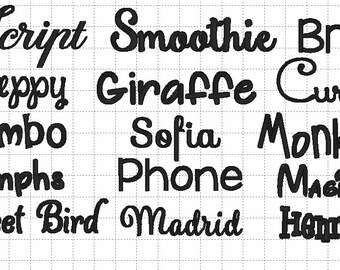 Script Smoothie Br
eppy Giraffe Cur
mbo Sofia Monk
mphs Phone Mag
et Bird Madrid Hen